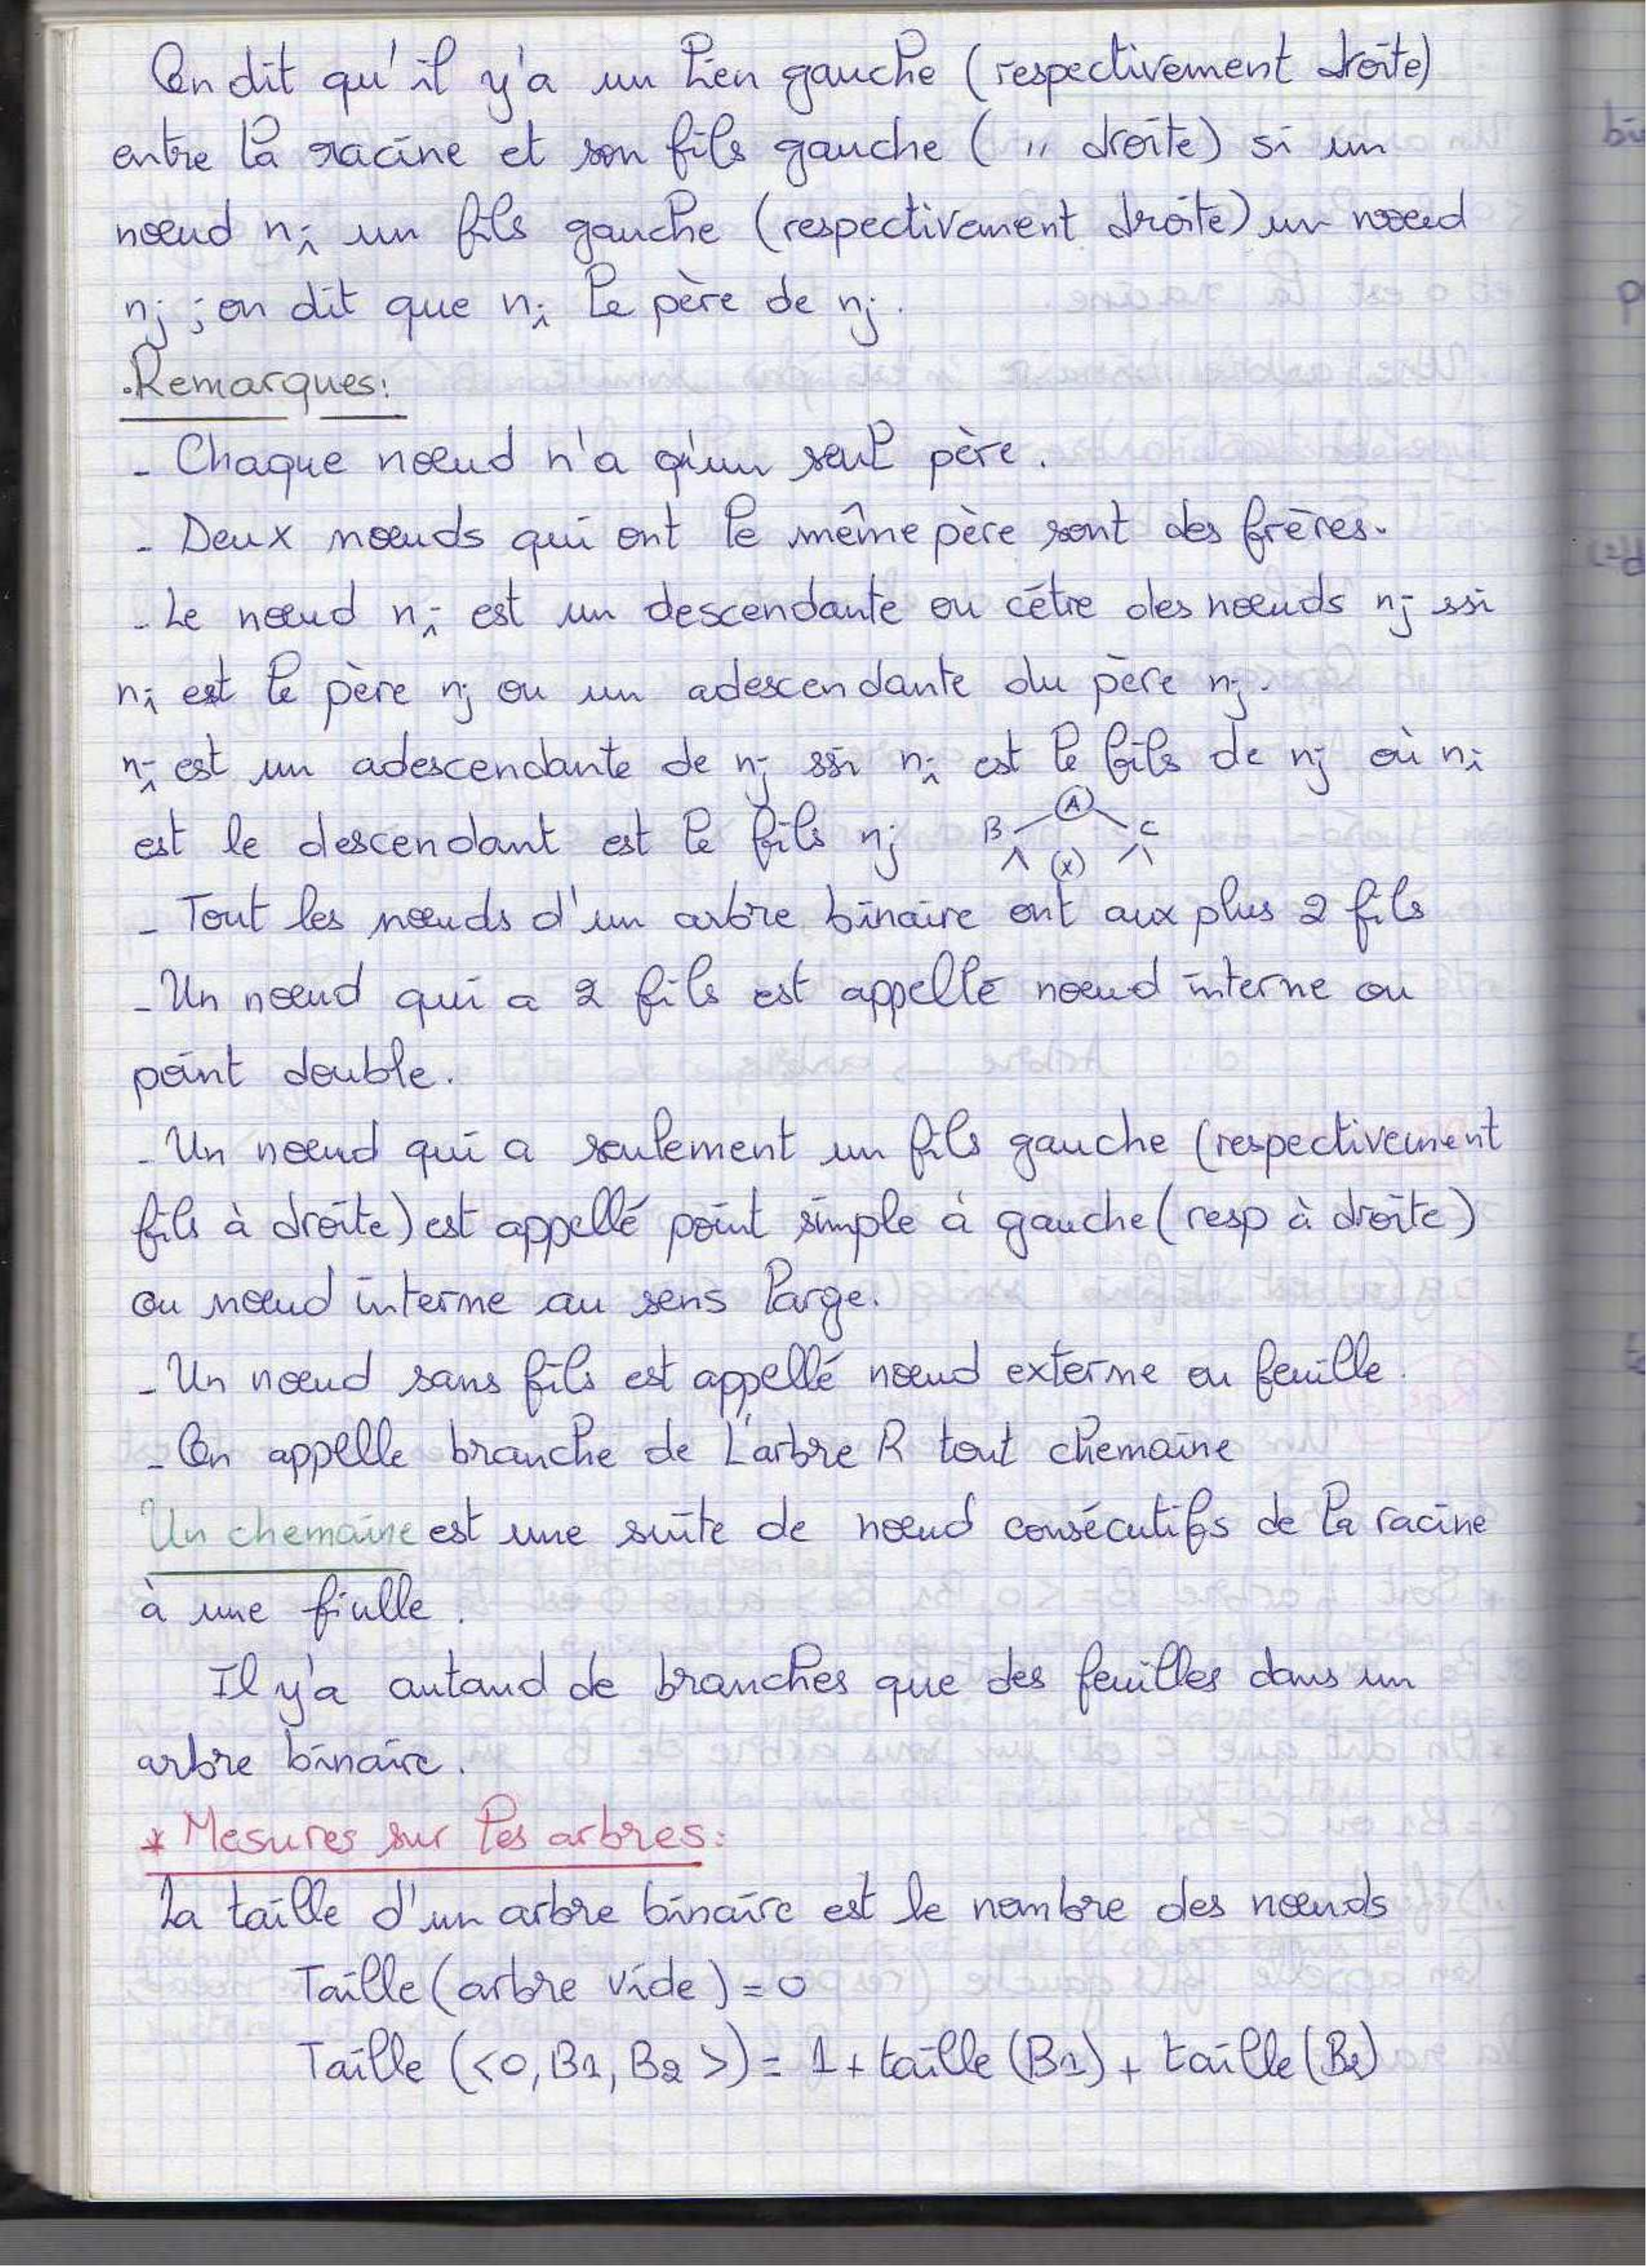 On dit qu'il y'a un lien gauche (respectivement droite)
entre la racine et son fils gauche ( " droite) si un
nœud ni un fils gauche (respectivement droite) un nœud
nj ; on dit que ni le père de nj.
.Remarques:
- Chaque nœud n'a qu'un seul père.
- Deux nœuds qui ont le même père sont des frères.
- Le nœud ni est un descendante ou cêtre des nœuds nj ssi
ni est le père nj ou un adescendante du père nj.
ni est un adescendante de nj ssi ni est le fils de nj où ni
est le descendant est le fils nj
A
B C
(x)
- Tout les nœuds d'un arbre binaire ont aux plus 2 fils
- Un nœud qui a 2 fils est appellé nœud interne ou
point double.
- Un nœud qui a seulement un fils gauche (respectivement
fils à droite) est appellé point simple à gauche (resp à droite)
ou nœud interne au sens large.
- Un nœud sans fils est appellé nœud externe ou feuille.
- On appelle branche de L'arbre R tout chemaine
Un chemaine est une suite de nœud consécutifs de la racine
à une fiulle.
Il y'a autand de branches que des feuilles dans un
arbre binaire.
* Mesures sur les arbres:
La taille d'un arbre binaire est le nombre des nœuds
Taille (arbre vide) = 0
Taille (<0, B1, B2 >) = 1 + taille (B1) + taille (B2)